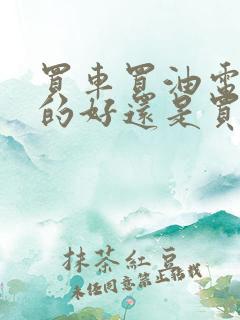 買車買油電
的好還是買
抹茶紅豆
未經同意禁止搭我